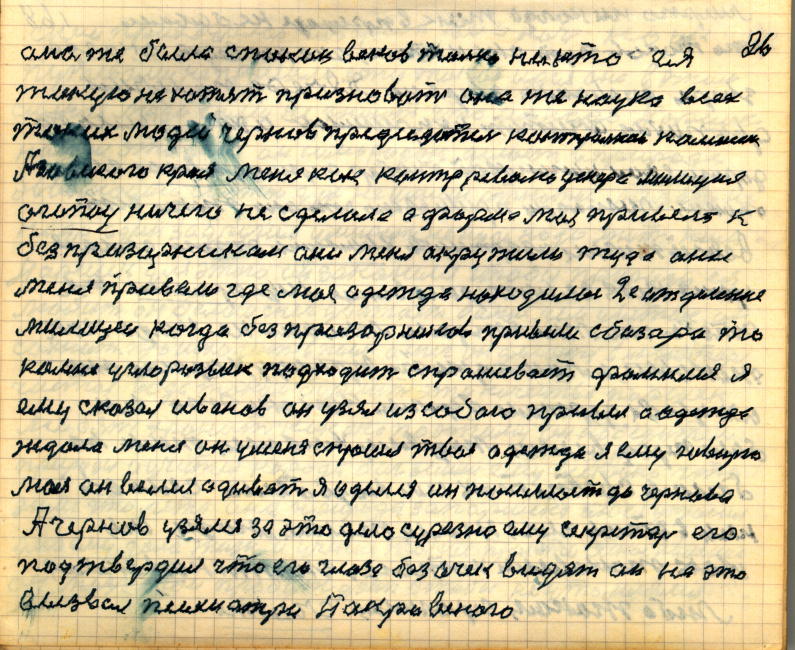 она же была споkон веков только не что а я 26
такую не хотят призноват она же наука всех
таких людей чернов председател контролная
края меня как контрреволюцонера милиция
ничего не сделала а форма моя привела к
безпризорникам они меня окружили туда они
меня привели где моя одежда находилас 2е отделение
милицеи когда безпризорников привели с базара то
комне углорозыск подходит спрашевает фамилия я
ему сказал иванов он узял из собою привел а одежда
ждала меня он уменя спросил твоя одежда я ему говорю
моя он велел одыват я оделся он посылает до чернова
А чернов узялся за это дело сурезно ему секретар его
подтвердил что его глаза без очек видят он на это
вызвал психиатра